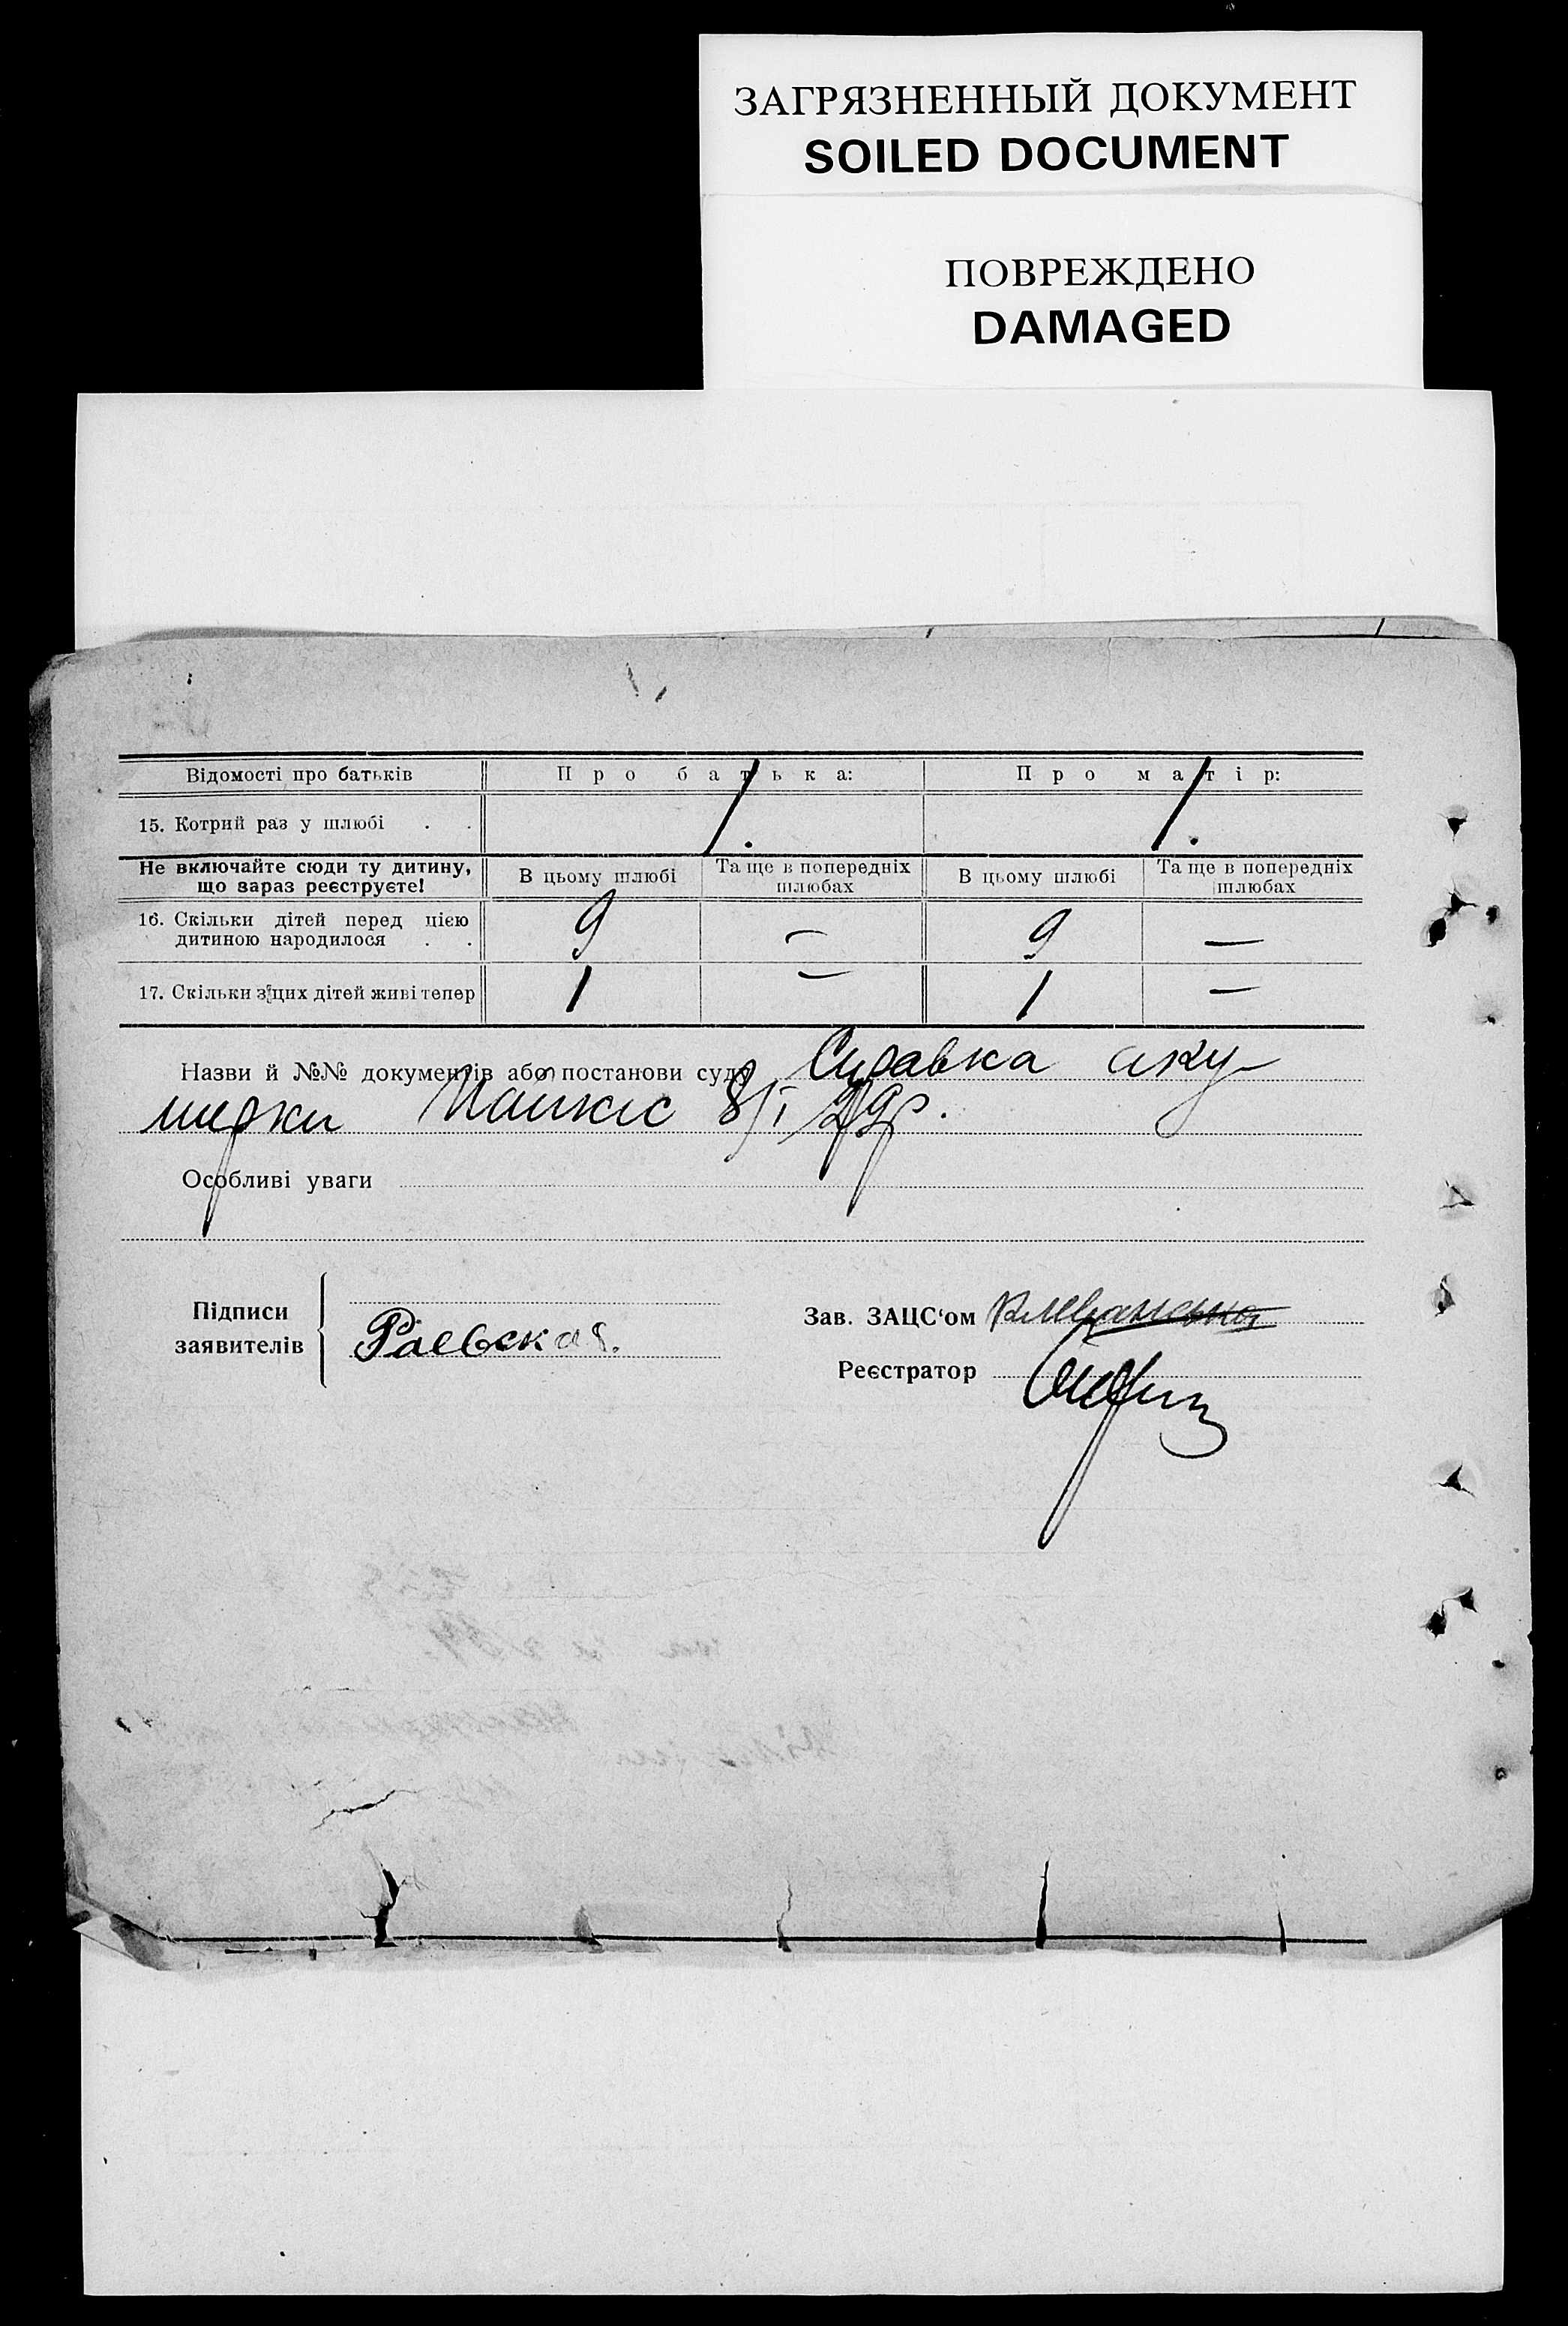 ЗАГРЯЗНЕННЫЙ ДОКУМЕНТ
SOILED DOCUMENT
ПОВРЕЖДЕНО
DAMAGED
Відомості про батьків Про батька: Про матір:
15. Котрий раз у шлюбі . . 1. 1.
Не включайте сюди ту дитину, що зараз реєструєте! В цьому шлюбі Та ще в попередніх шлюбах В цьому шлюбі Та ще в попередніх шлюбах
16. Скільки дітей перед цією дитиною народилося . . 9 — 9 —
17. Скільки з цих дітей живі тепер 1 — 1 —
Назви й №№ документів або постанови суду Справка аку-
шерки 8/I
Особливі уваги
Підписи заявителів Раевская.
Зав. ЗАЦС‘ом
Реєстратор